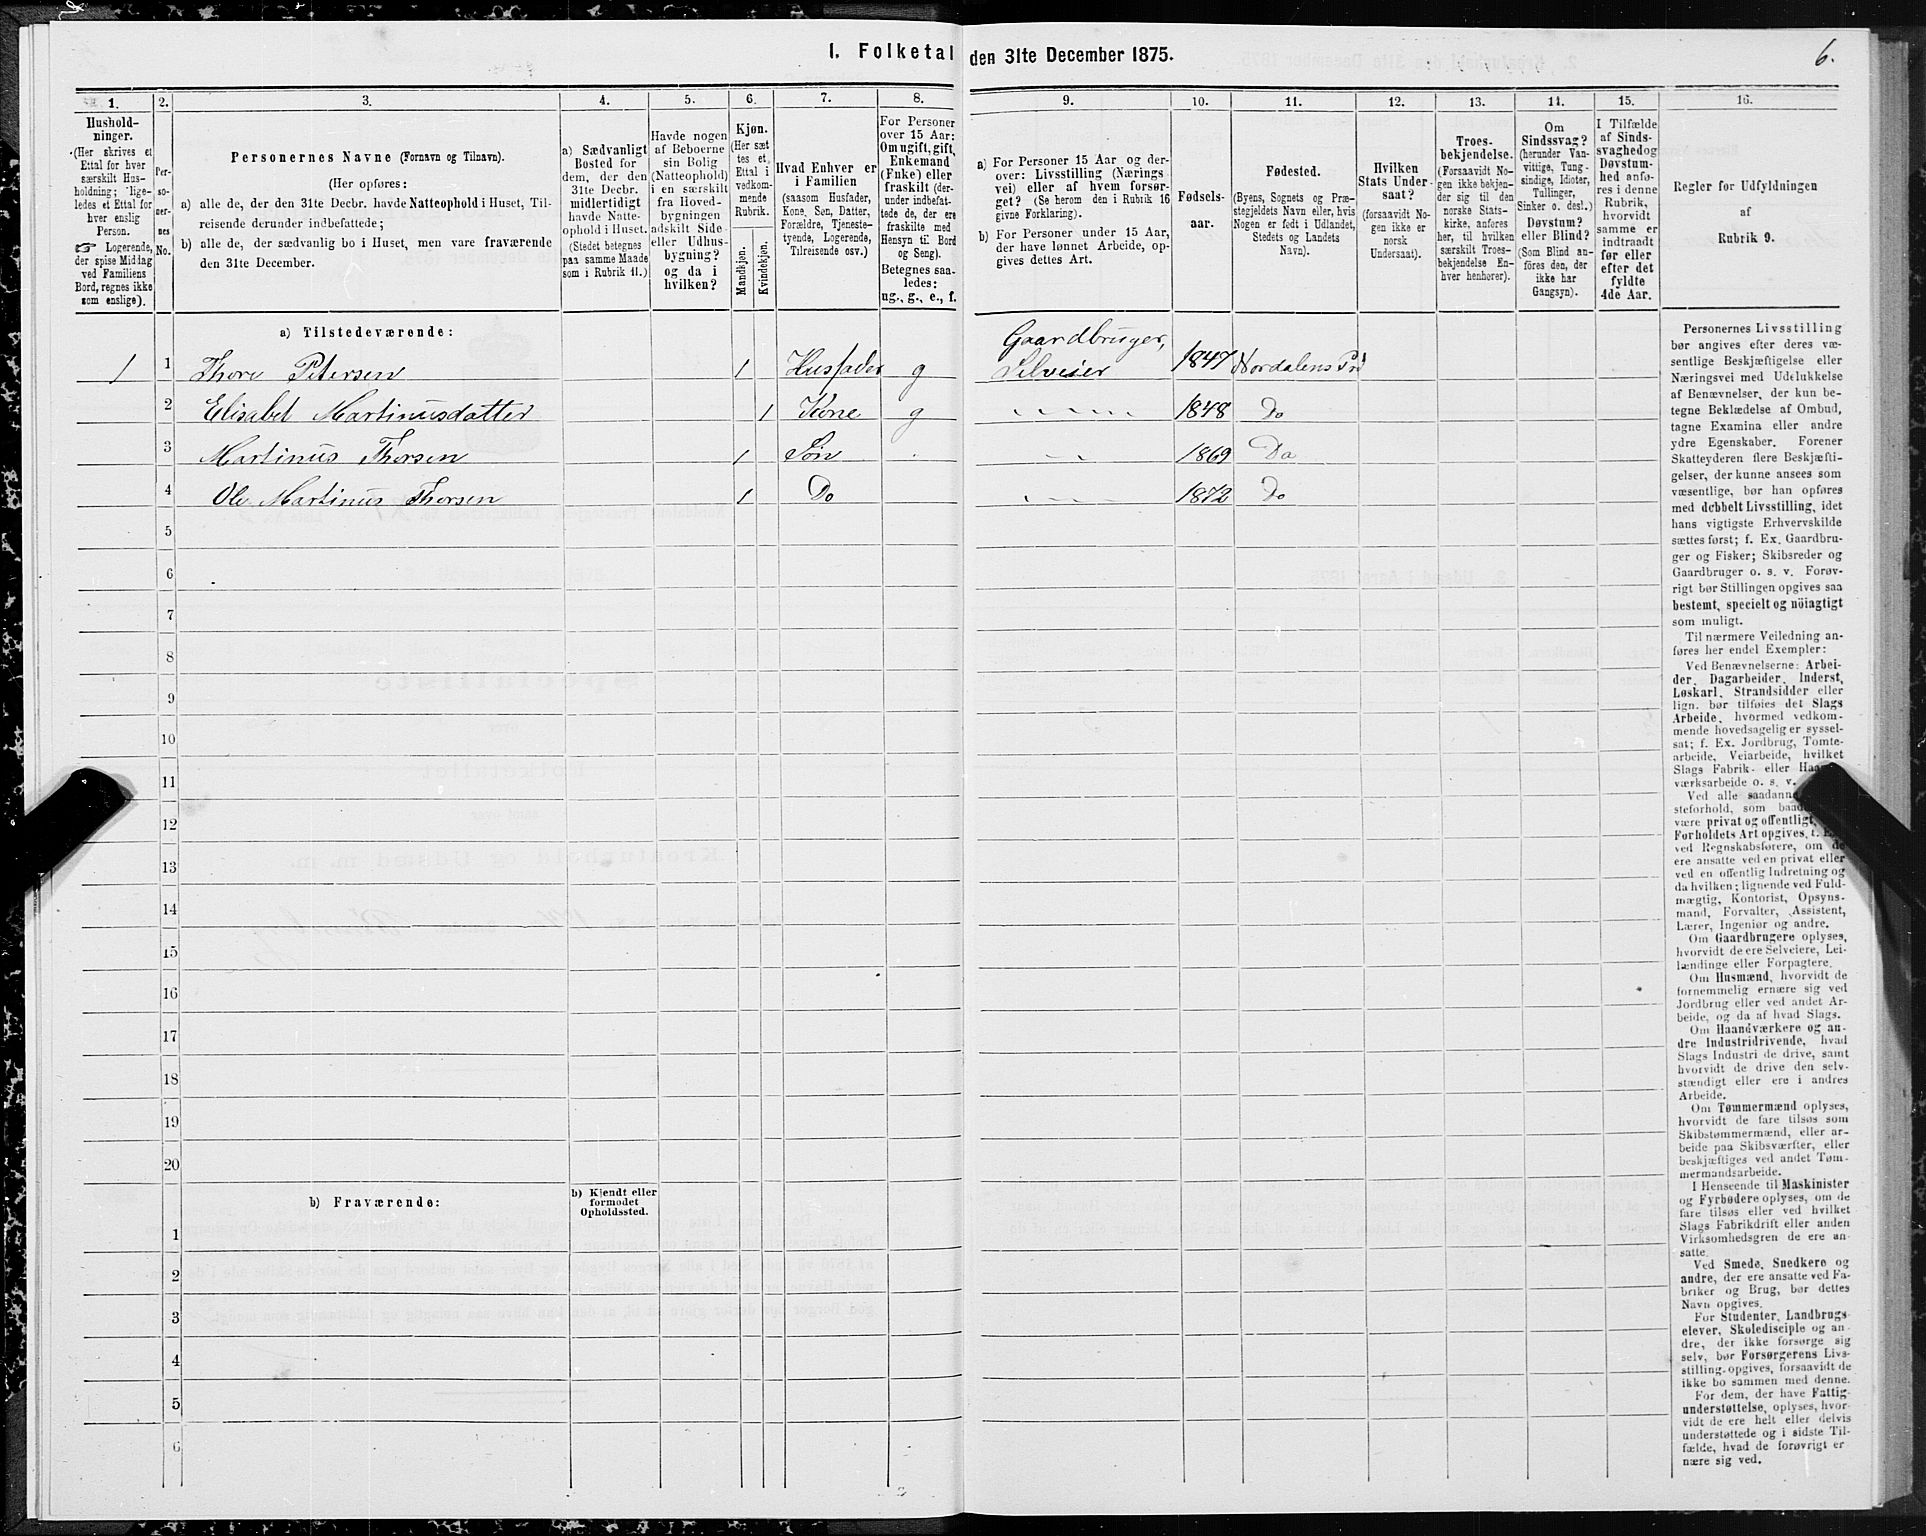 1. Folketal den 31te December 1875.
6.
1. 2. 3. 4. 5. 6. 7. 8. 9. 10. 11. 12. 13. 14. 15. 16.
Hushold-
ninger.
(Her skrives et
Ettal for hver
særskilt Hus-
holdning; lige-
ledes et Ettal for
hver enslig
Person.
☞ Logerende,
der spise Middag
ved Familiens
Bord, regnes ikke
som enslige).
Per-
so-
ner-
nes
No.
Personernes Navne (Fornavn og Tilnavn).
(Her opføres:
a) alle de, der den 31te Decbr. havde Natteophold i Huset, Til-
reisende derunder indbefattede;
b) alle de, der sædvanlig bo i Huset, men vare fraværende
den 31te December.
a) Sædvanligt
Bosted for
dem, der den
31te Decbr.
midlertidigt
havde Natte-
ophold i Huset.
(Stedet betegnes
paa samme Maade
som i Rubrik 11.)
Havde nogen
af Beboerne
sin Bolig
(Natteophold)
i en særskilt
fra Hoved-
bygningen
adskilt Side-
eller Udhus-
bygning?
og da i
hvilken?
Kjøn.
(Her sæt
tes et
Ettal i
vedkom-
mende
Rubrik.
Mandkjøn.
Kvindekjøn.
Hvad Enhver er
i Familien
(saasom Husfader,
Kone, Søn, Datter,
Forældre, Tjeneste-
tyende, Logerende,
Tilreisende osv.)
For Personer
over 15 Aar:
Om ugift, gift,
Enkemand
(Enke) eller
fraskilt (der-
under indbefat-
tede de, der ere
fraskilte med
Hensyn til Bord
og Seng).
Betegnes saa-
ledes:
ug., g., e., f.
a) For Personer 15 Aar og der-
over: Livsstilling (Nærings
vei) eller af hvem forsør-
get? (Se herom den i Rubrik 16
givne Forklaring).
b) For Personer under 15 Aar,
der have lønnet Arbeide, op-
gives dettes Art.
Fødsels-
aar.
Fødested.
(Byens, Sognets og Præ-
stegjeldets Navn eller, hvis
Nogen er født i Udlandet,
Stedets og Landets
Navn).
Hvilken
Stats Under-
saat?
(forsaavidt No-
gen ikke er
norsk
Undersaat).
Troes-
bekjendelse.
(Forsaavidt No-
gen ikke bekjen-
der sig til den
norske Stats-
kirke, anføres
her, til hvilken
særskilt Troes-
bekjendelse En-
hver henhorer).
Om
Sindssvag?
(herunder Van-
vittige, Tung-
sindige, Idioter,
Tullinger,
Sinker o. desl.)
Døvstum?
eller Blind?
(Som Blind an-
føres den, der
ikke har
Gangsyn).
I Tilfælde
af Sinds-
svaghed og
Døvstum-
hed anfø-
res i denne
Rubrik,
hvorvidt
samme er
indtraadt
før eller
efter det
fyldte
4de Aar.
Regler for Udfyldningen
af
Rubrik 9.
a) Tilstedeværende:
1 1 Thore Petersen 1 Husfader g Gaardbruger, Selveier 1847 Nordalens Prd
2 Elisabet Martinusdatter 1 Kone g 1848 Do
3 Martinus Thorsen 1 Søn 1869 Do
4 Ole Martinus Thorsen 1 Do 1872 Do
5
6
7
8
9
10
11
12
13
14
15
16
17
18
19
20
b) Fraværende:
b) Kjendt eller
formodet
Opholdssted.
1
2
3
4
5
6
Personernes Livsstilling
bør angives efter deres væ-
sentlige Beskjæftigelse eller
Næringsvei med Udelukkelse
af Benævnelser, der kun be-
tegne Beklædelse af Ombud,
tagne Examina eller andre
ydre Egenskaber. Forener
Skatteyderen flere Beskjæfti-
gelser, der kunne ansees som
væsentlige, bør han opføres
med dobbelt Livsstilling, idet
hans vigtigste Erhvervskilde
sættes først; f. Ex. Gaardbru-
ger og Fisker; Skibsreder og
Gaardbruger o. s. v. Forøv-
rigt bør Stillingen opgives saa
bestemt, specielt og nöiagtigt
som muligt.
Til nærmere Veiledning an-
føres her endel Exempler:
Ved Benævnelserne: Arbei-
der, Dagarbeider, Inderst,
Løskarl, Strandsidder eller
lign. bør tilføies det Slags
Arbeide, hvormed vedkom-
mende hovedsagelig er syssel-
sat; f. Ex. Jordbrug, Tomte-
arbeide, Veiarbeide, hvilket
Slags Fabrik- eller Haand-
værksarbeide o. s. v.
Ved alle saadanne
steforhold, som baade
være privat og offentligt,
Forholdets Art opgives, f. Ex.
ved Regnskabsførere, om de
ere ansatte ved en privat eller
ved en offentlig Indretning og
da hvilken; lignende ved Fuld-
mægtig, Kontorist, Opsyns-
mand, Forvalter, Assistent,
Lærer, Ingeniør og andre.
Om Gaardbrugere oplyses,
hvorvidt de ere Selveiere, Lei-
lændinge eller Forpagtere.
Om Husmænd, hvorvidt de
fornemmelig ernære sig ved
Jordbrug eller ved andet Ar-
beide, og da af hvad Slags.
Om Haandværkere og an-
dre Industridrivende, hvad
Slags Industri de drive, samt
hvorvidt de drive den selv-
stændigt eller ere i andres
Arbeide.
Om Tømmermænd oplyses,
hvorvidt de fare tilsøs som
Skibstømmermænd, eller ar-
beide paa Skibsværfter, eller
beskjæftiges ved andet Tøm-
mermandsarbeide.
I Henseende til Maskinister
og Fyrbødere oplyses, om de
fare tilsøs eller ved hvilket
Slags Fabrikdrift eller anden
Virksomhedsgren de ere an-
satte.
Ved Smede, Snedkere og
andre, der ere ansatte ved Fa-
briker og Brug, bør dettes
Navn opgives.
For Studenter, Landbrugs-
elever, Skoledisciple og an-
dre, der ikke forsørge sig
selv, bør Forsørgerens Livs-
stilling opgives, forsaavidt de
ikke bo sammen med denne.
For dem, der have Fattig-
understøttelse, oplyses, hvor-
vidt de ere helt eller delvis
understøttede og i sidste Til-
fælde, hvad de forøvrigt er
nære sig ved.